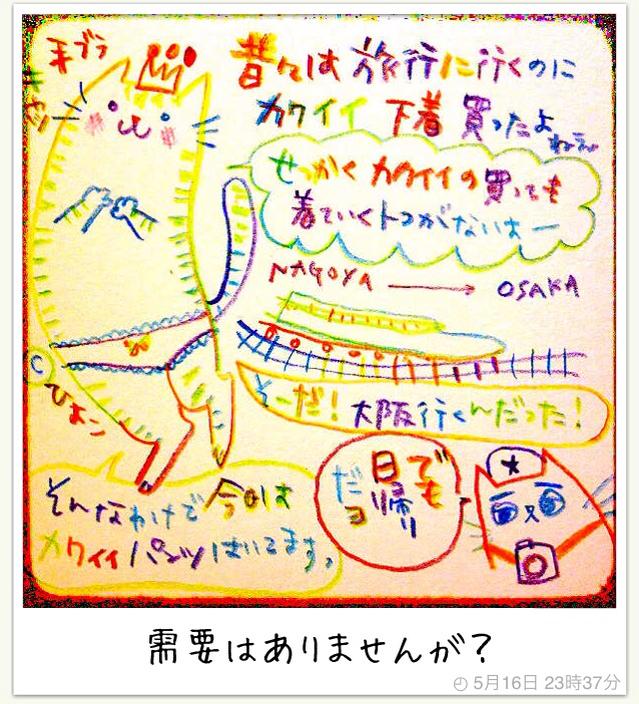 手ブラ
キャッ
昔々は旅行に行くのに
カワイイ下着買ったよ
ねぇ〜
せっかくカワイイの買っても
着ていくトコがないわー
NAGOYA → OSAKA
そーだ！大阪行くんだった！
ひょこっ
でも
日帰り
だョ
そんなわけで今日は
カワイイパンツはいてます。
需要はありませんが？
5月16日 23時37分